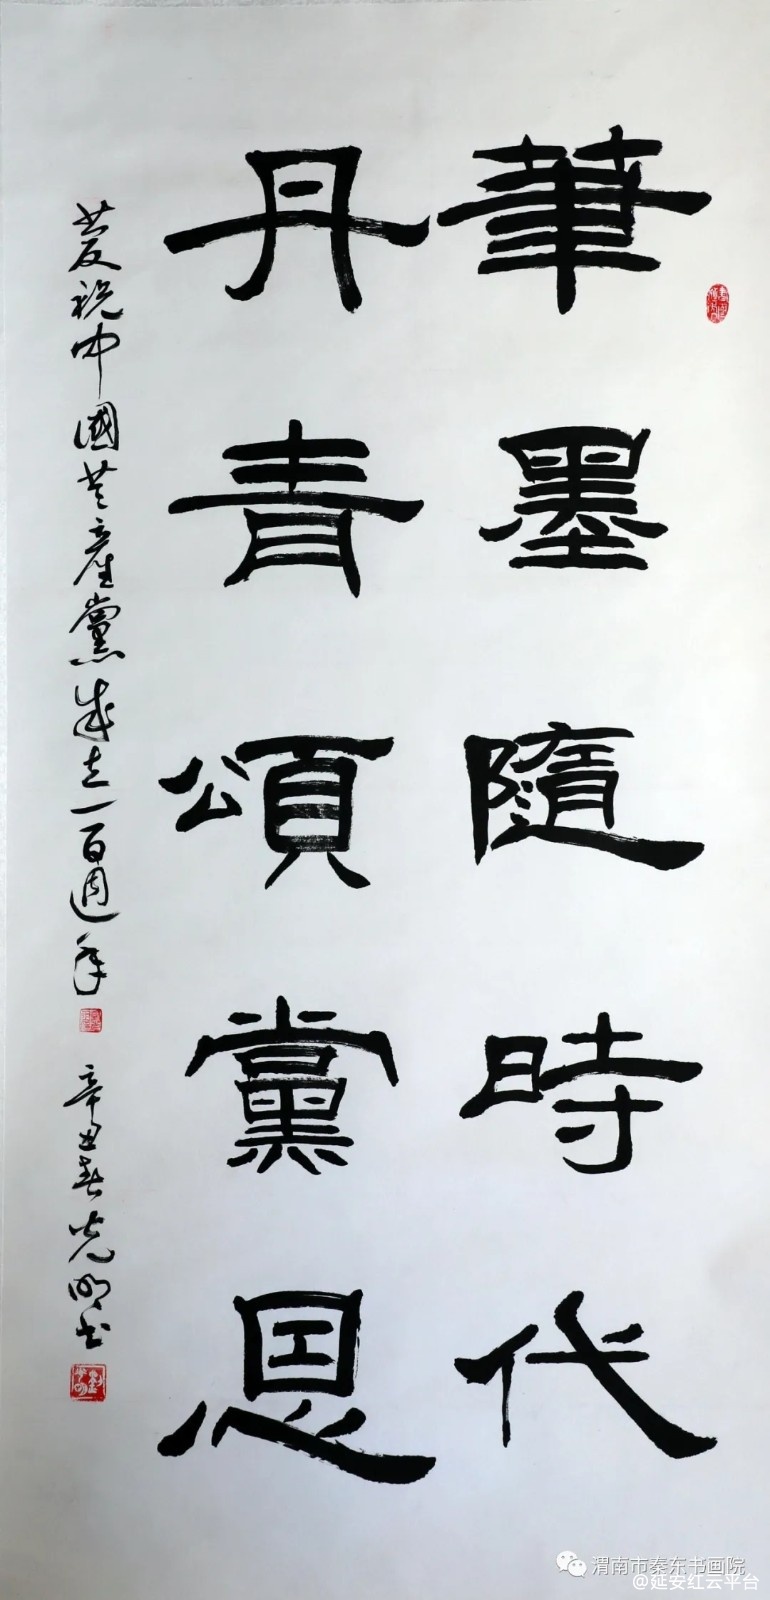 筆墨隨時代
丹青頌黨恩
慶祝中國共產黨成立一百週年
辛丑春光明書
渭南市秦东书画院
@延安红云平台